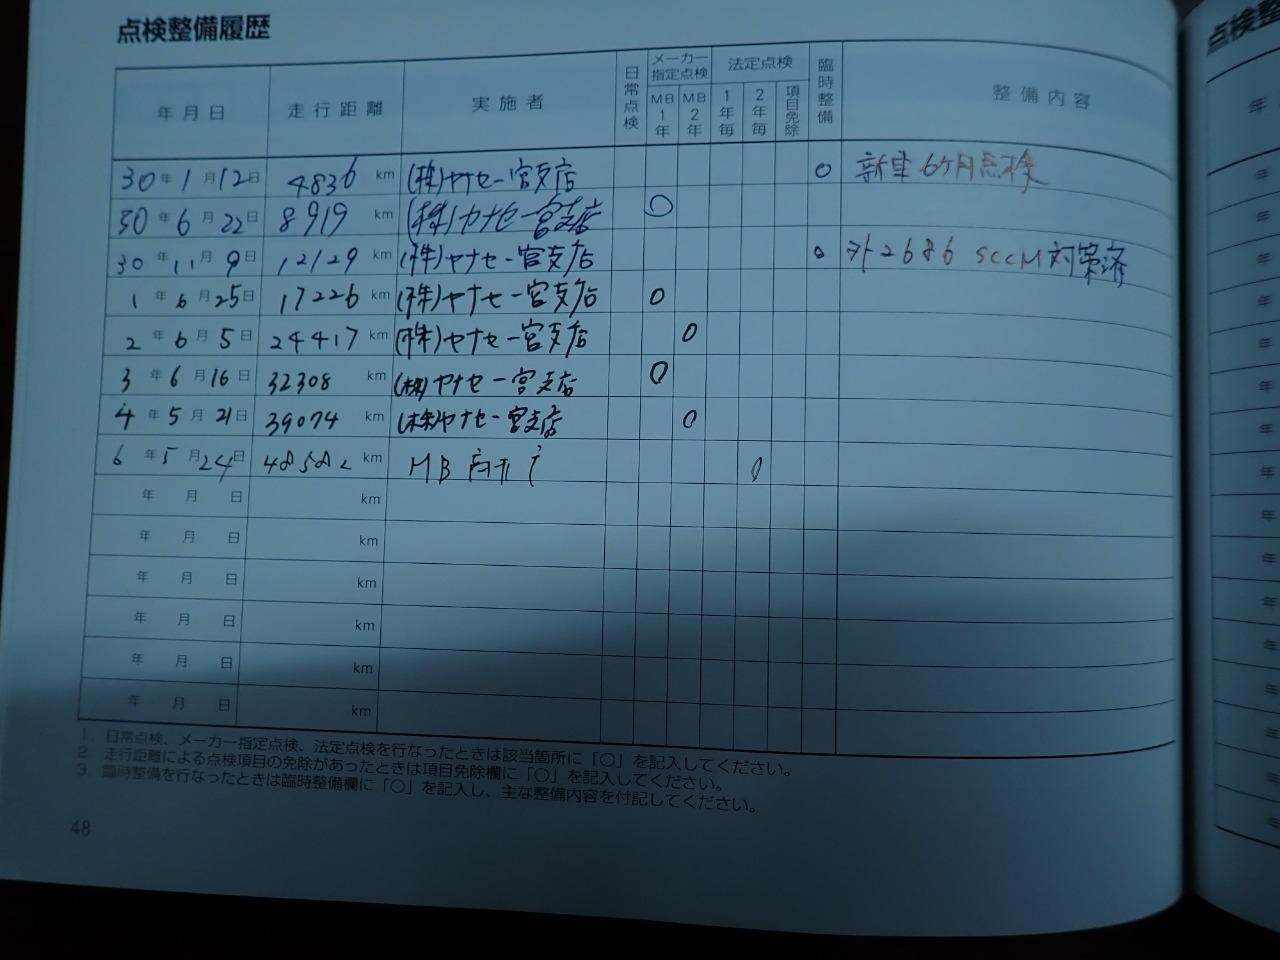 点検整備履歴
点検整
年月日 走行距離 実施者 日常点検 メーカー指定点検 法定点検 臨時整備 整備内容
MB1年 MB2年 1年毎 2年毎 項目免除
30年1月12日 4836 km (株)ヤナセ一宮支店 ○ 新車6ヶ月点検
30年6月22日 8919 km (株)ヤナセ一宮支店 ○
30年11月9日 12129 km (株)ヤナセ一宮支店 ○ 2686 SCCM対策済
1年6月25日 17226 km (株)ヤナセ一宮支店 ○
2年6月5日 24417 km (株)ヤナセ一宮支店 ○
3年6月16日 32308 km (株)ヤナセ一宮支店 ○
4年5月21日 39074 km (株)ヤナセ一宮支店 ○
6年5月24日 km MB ○
年 月 日 km
年 月 日 km
年 月 日 km
年 月 日 km
年 月 日 km
年 月 日 km
1. 日常点検、メーカー指定点検、法定点検を行なったときは該当箇所に「○」を記入してください。
2. 走行距離による点検項目の免除があったときは項目免除欄に「○」を記入してください。
3. 臨時整備を行なったときは臨時整備欄に「○」を記入し、主な整備内容を付記してください。
48